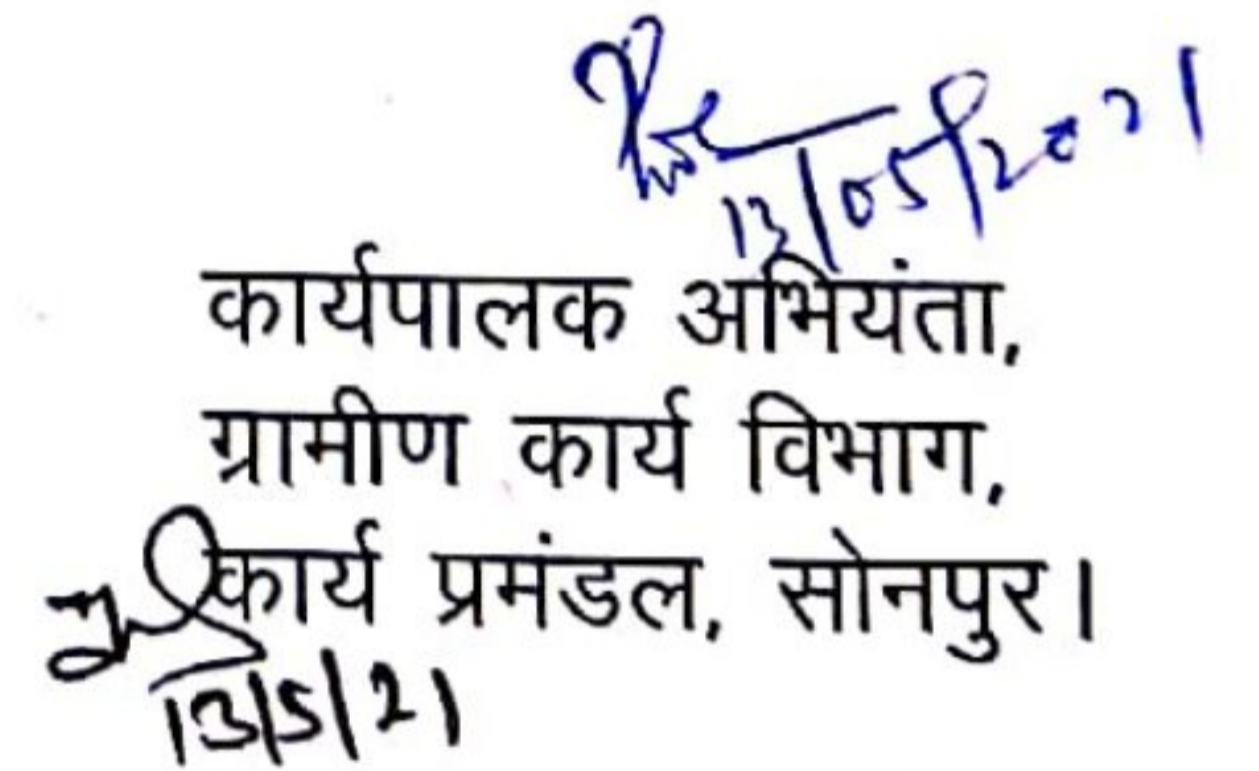 13/05/2021
कार्यपालक अभियंता,
ग्रामीण कार्य विभाग,
कार्य प्रमंडल, सोनपुर।
13/5/21